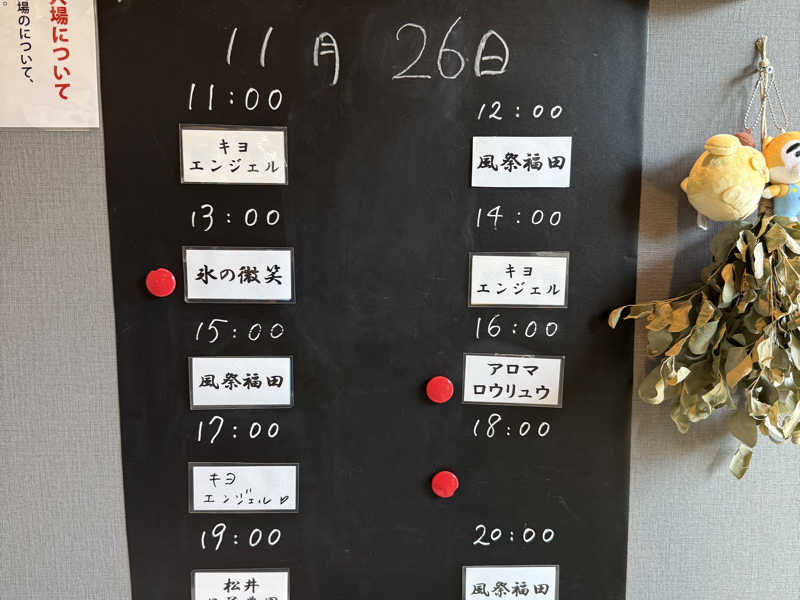 入場について
場のについて、
11月 26日
11:00
キヨ
エンジェル
12:00
風祭福田
13:00
氷の微笑
14:00
キヨ
エンジェル
15:00
風祭福田
16:00
アロマ
ロウリュウ
17:00
キヨ
エンジェル♡
18:00
19:00
松井
20:00
風祭福田